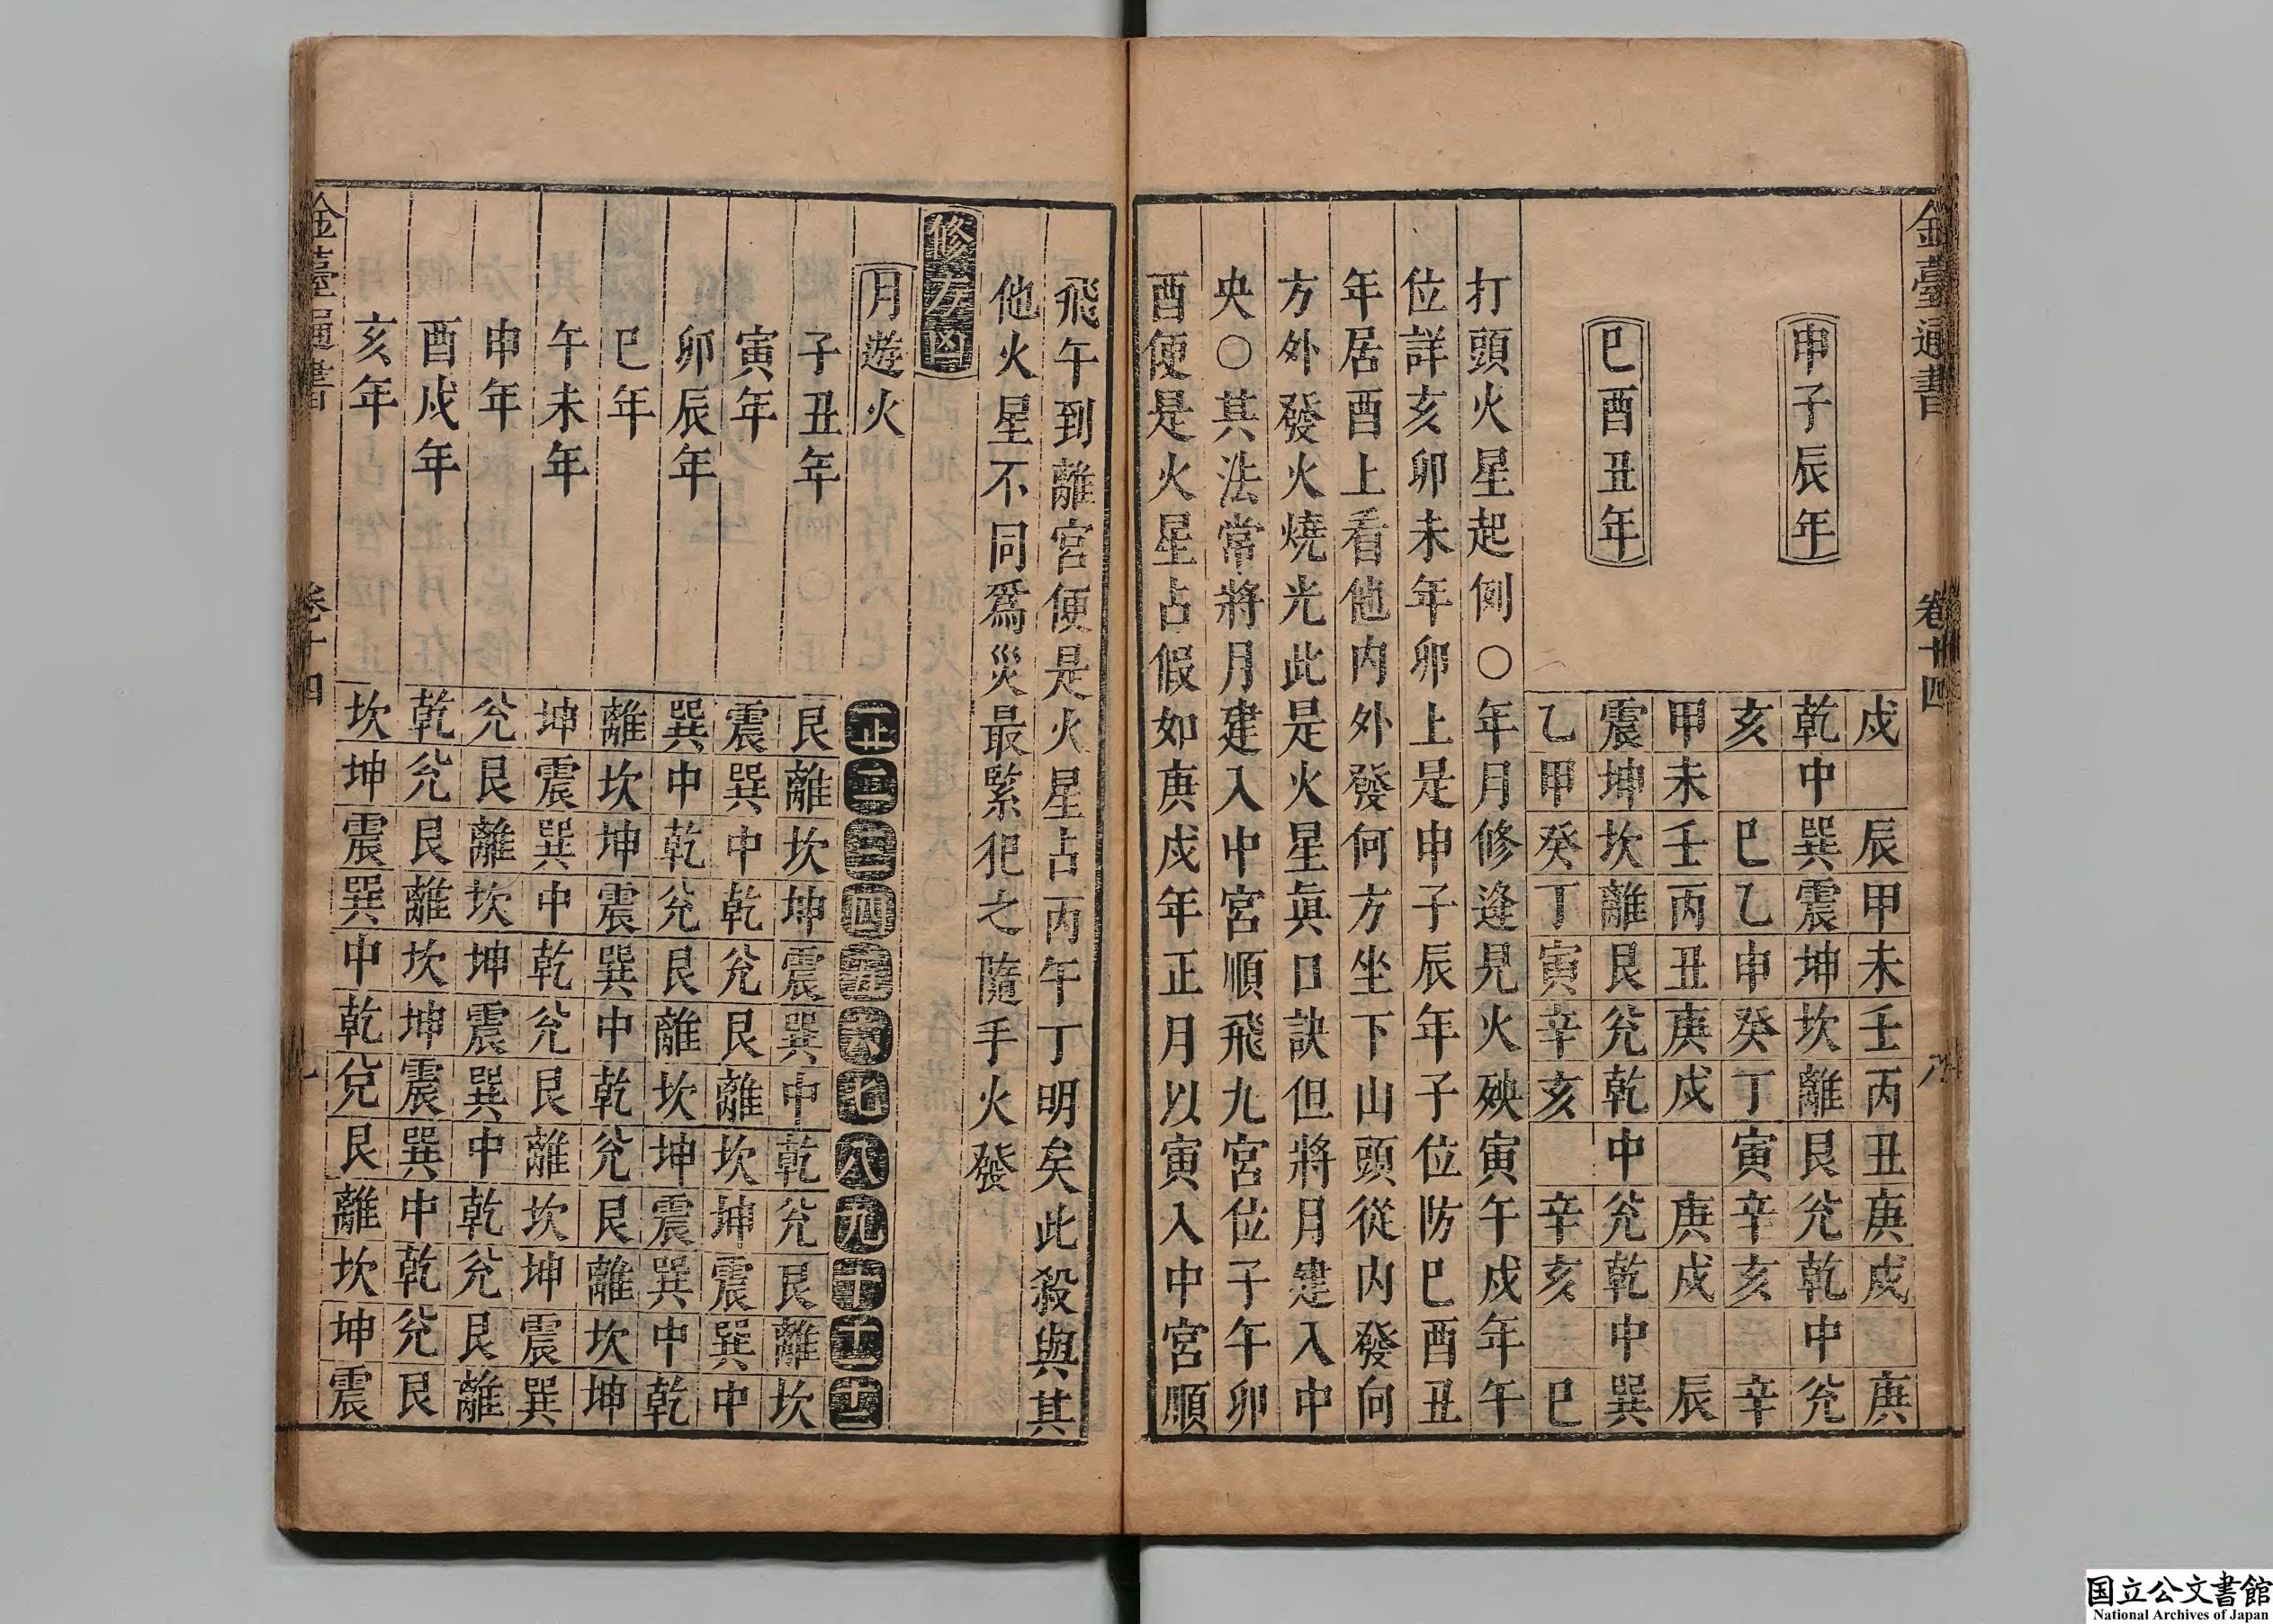 金臺通書 卷十四 八
申子辰年
戌 辰甲未壬丙丑庚戌 庚
乾中巽震坤坎離艮兊乾中兊
亥 巳乙申癸丁寅辛亥 辛
巳酉丑年
甲未壬丙丑庚戌 庚戌 辰
震坤坎離艮兊乾中兊乾中巽
乙甲癸丁寅辛亥 辛亥 巳
打頭火星起例○年月修逢見火殃寅午戌年午
位詳亥卯未年卯上是申子辰年子位防巳酉丑
年居酉上看他內外發何方坐下山頭從內發向
方外發火燒光此是火星眞口訣但將月建入中
央○其法常將月建入中宮順飛九宮位子午卯
酉便是火星占假如庚戌年正月以寅入中宮順
飛午到離宮便是火星占丙午丁明矣此殺與其
他火星不同爲災最緊犯之隨手火發
修方凶
月遊火 正二三四五六七八九十十一十二
子丑年 艮離坎坤震巽中乾兊艮離坎
寅年 震巽中乾兊艮離坎坤震巽中
卯辰年 巽中乾兊艮離坎坤震巽中乾
巳年 離坎坤震巽中乾兊艮離坎坤
午未年 坤震巽中乾兊艮離坎坤震巽
申年 兊艮離坎坤震巽中乾兊艮離
酉戌年 乾兊艮離坎坤震巽中乾兊艮
亥年 坎坤震巽中乾兊艮離坎坤震
金臺通書 卷十四
国立公文書館
National Archives of Japan